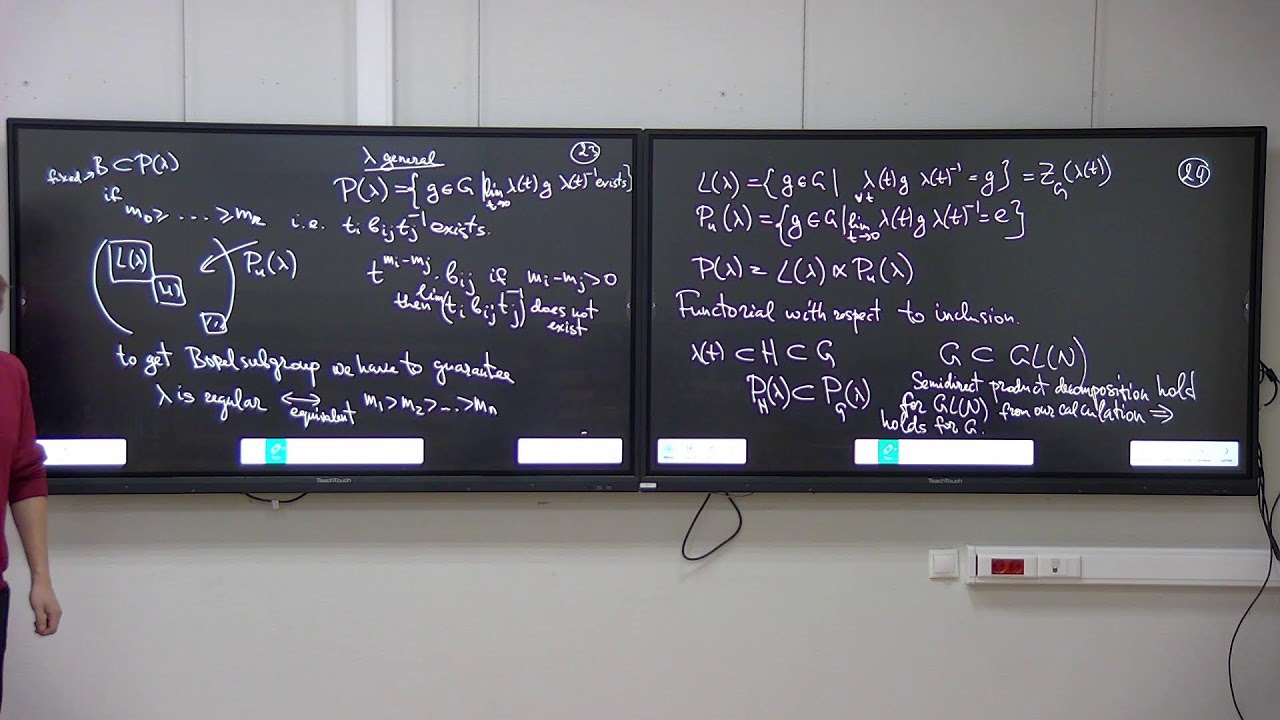 fixed → B ⊂ P(λ)
if
m₀ ≥ .... ≥ mₙ i.e. tᵢ bᵢⱼ tⱼ⁻¹ exists.
λ general
23
P(λ) = { g ∈ G | lim t→0 λ(t) g λ(t)⁻¹ exists}
L(λ)
Pᵤ(λ)
t^{mᵢ-mⱼ} · bᵢⱼ if mᵢ - mⱼ > 0
then lim (tᵢ bᵢⱼ tⱼ⁻¹) does not
exist
to get Borel subgroup we have to guarantee
λ is regular ⟷ equivalent m₁ > m₂ > ... > mₙ
TeachTouch
L(λ) = { g ∈ G | ∀t λ(t) g λ(t)⁻¹ = g } = Z_G(λ(t))
24
Pᵤ(λ) = { g ∈ G | lim t→0 λ(t) g λ(t)⁻¹ = e }
P(λ) = L(λ) ∝ Pᵤ(λ)
Functorial with respect to inclusion.
λ(t) ⊂ H ⊂ G
P_H(λ) ⊂ P_G(λ)
G ⊂ GL(N)
Semidirect product decomposition hold
for GL(N) from our calculation ⇒
holds for G.
TeachTouch